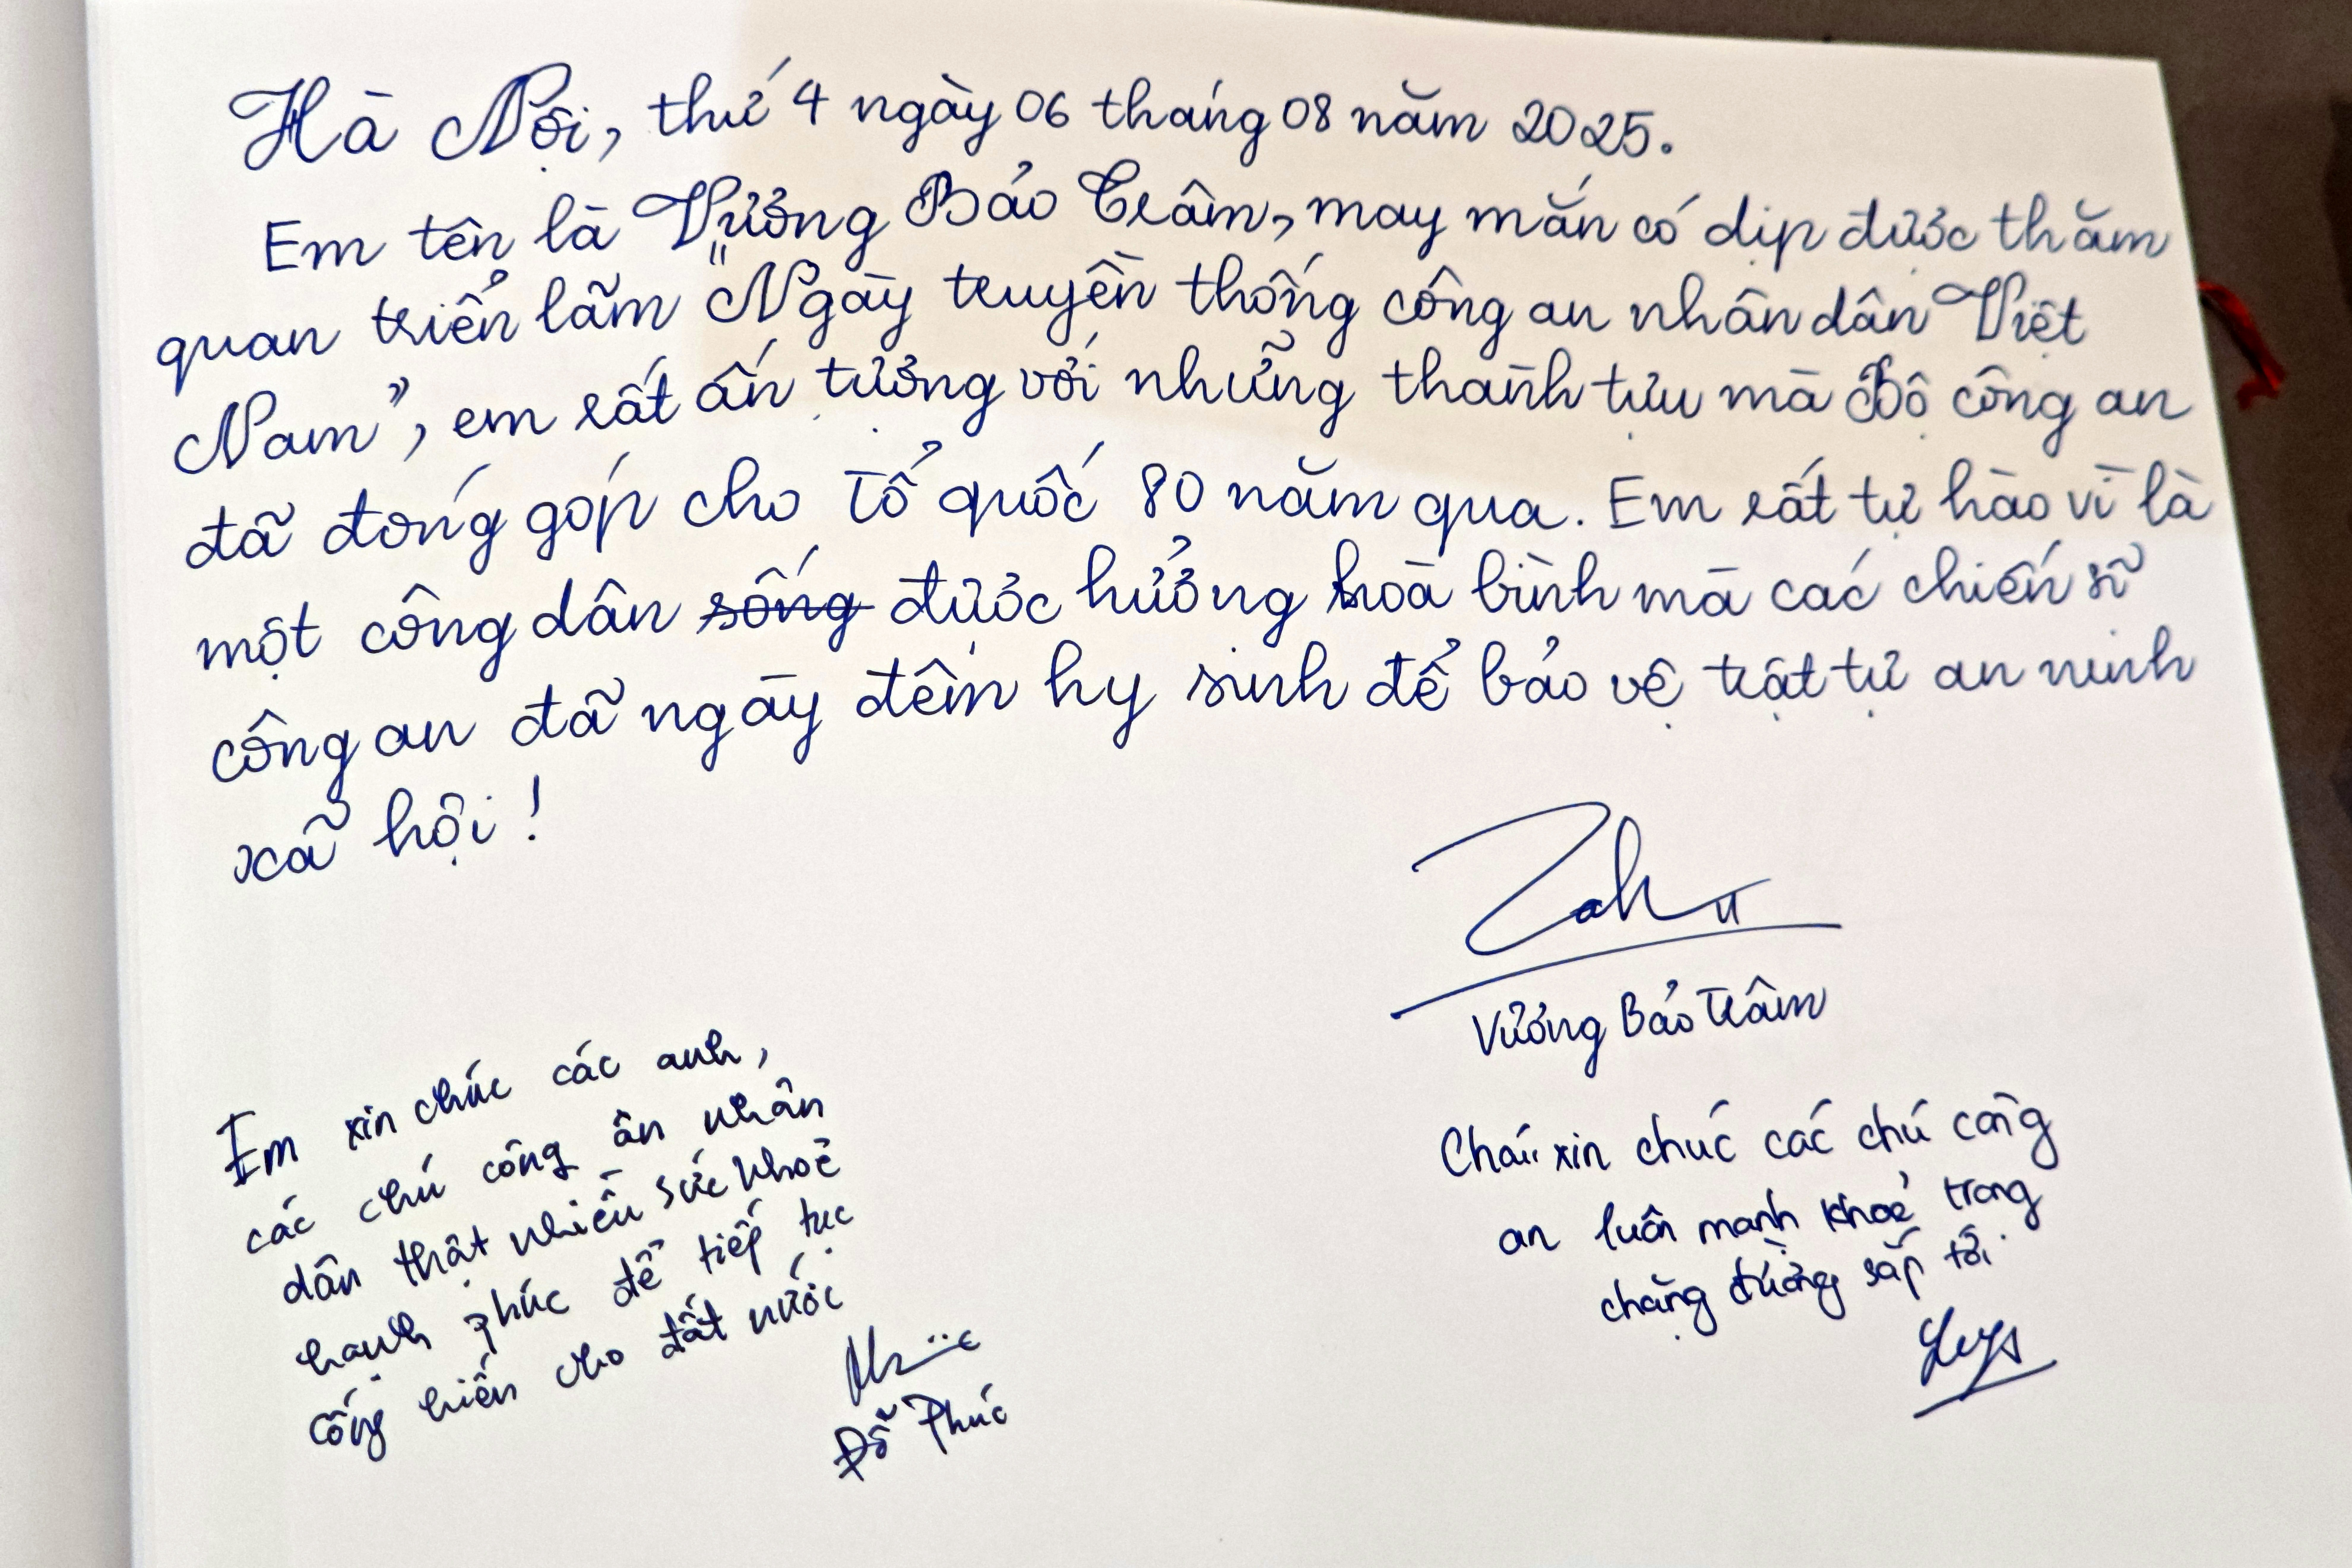 Hà Nội, thứ 4 ngày 06 tháng 08 năm 2025.
Em tên là Vương Bảo Trâm, may mắn có dịp được thăm
quan triển lãm "Ngày truyền thống công an nhân dân Việt
Nam", em rất ấn tượng với những thành tựu mà Bộ công an
đã đóng góp cho Tổ quốc 80 năm qua. Em rất tự hào vì là
một công dân sống được hưởng hoà bình mà các chiến sĩ
công an đã ngày đêm hy sinh để bảo vệ trật tự an ninh
xã hội!
Vương Bảo Trâm
Em xin chúc các anh,
các chú công ân nhân
dân thật nhiều sức khoẻ
hạnh phúc để tiếp tục
cống hiến cho đất nước
Đỗ Phúc
Cháu xin chúc các chú công
an luôn mạnh khoẻ trong
chặng đường sắp tới.